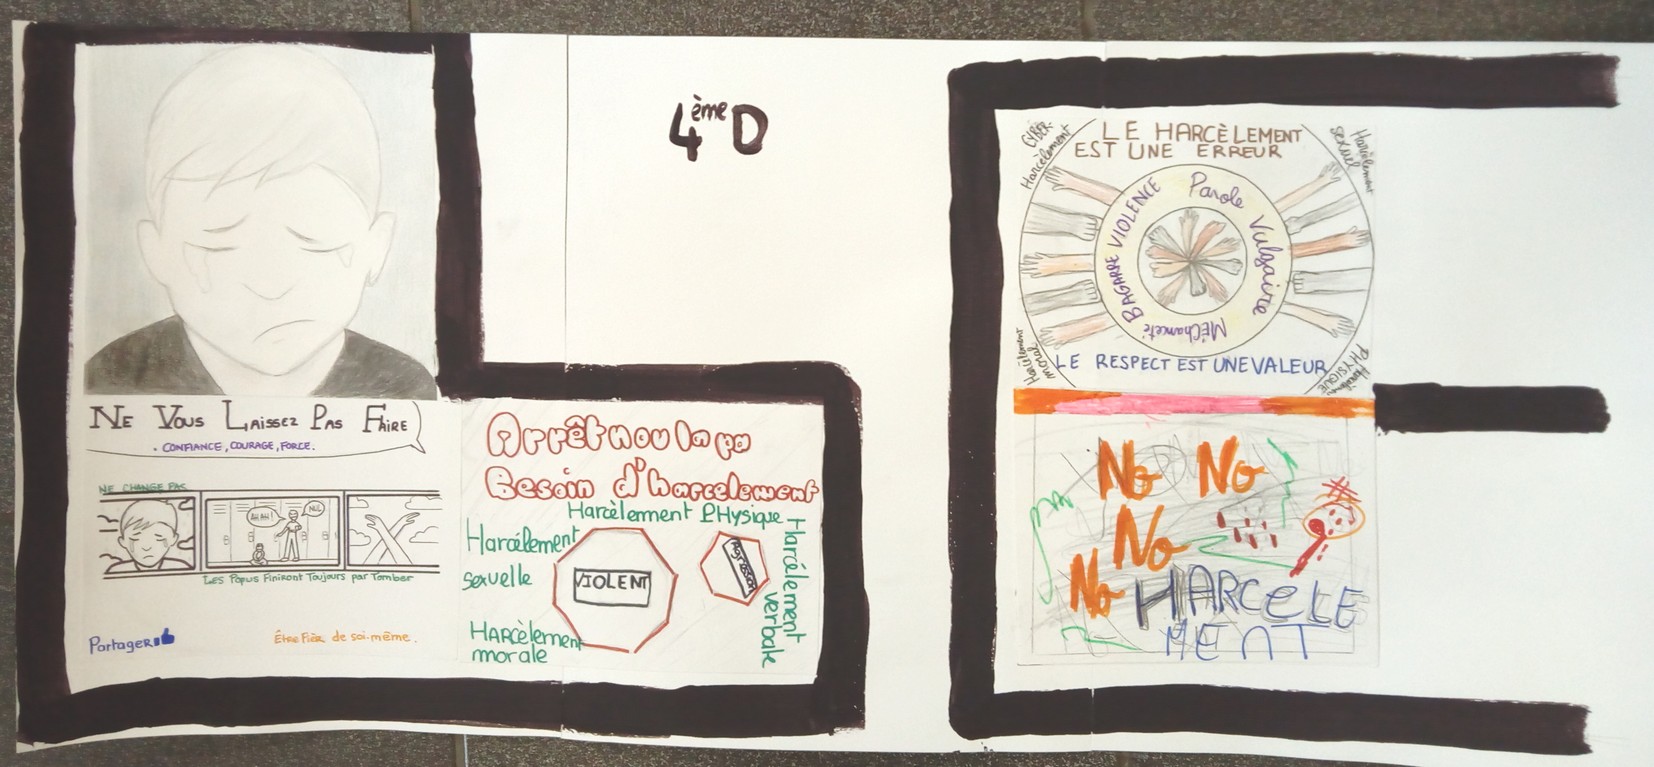 4ème D
NE VOUS LAISSEZ PAS FAIRE
. CONFIANCE, COURAGE, FORCE.
NE CHANGE PAS
AH AH !
NUL
Les Popus Finiront Toujours par Tomber
Partager
Être Fier de soi-même.
Arrêt nou la pa
Besoin d'harcelement
Harcèlement PHysique
Harcélement
sexuelle
HARcèlement
morale
Harcélement
verbale
VIOLENT
CYBER-
Harcèlement
Harcèlement
sexuel
LE HARCÈLEMENT
EST UNE ERREUR
BAGARRE VIOLENCE Parole Vulgaire
MÉChanceté
Harcèlement
moral
PHYSIQUE
LE RESPECT EST UNE VALEUR
No No
No
No HARCELE
MENT